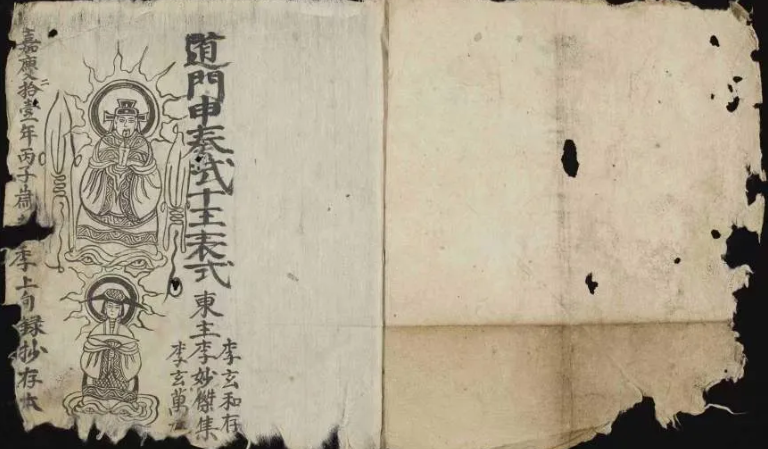 李玄和存
道門申奏式十王表式 東主李妙傑集
李玄萬
嘉慶二拾壹年丙子
李上旬錄抄存本